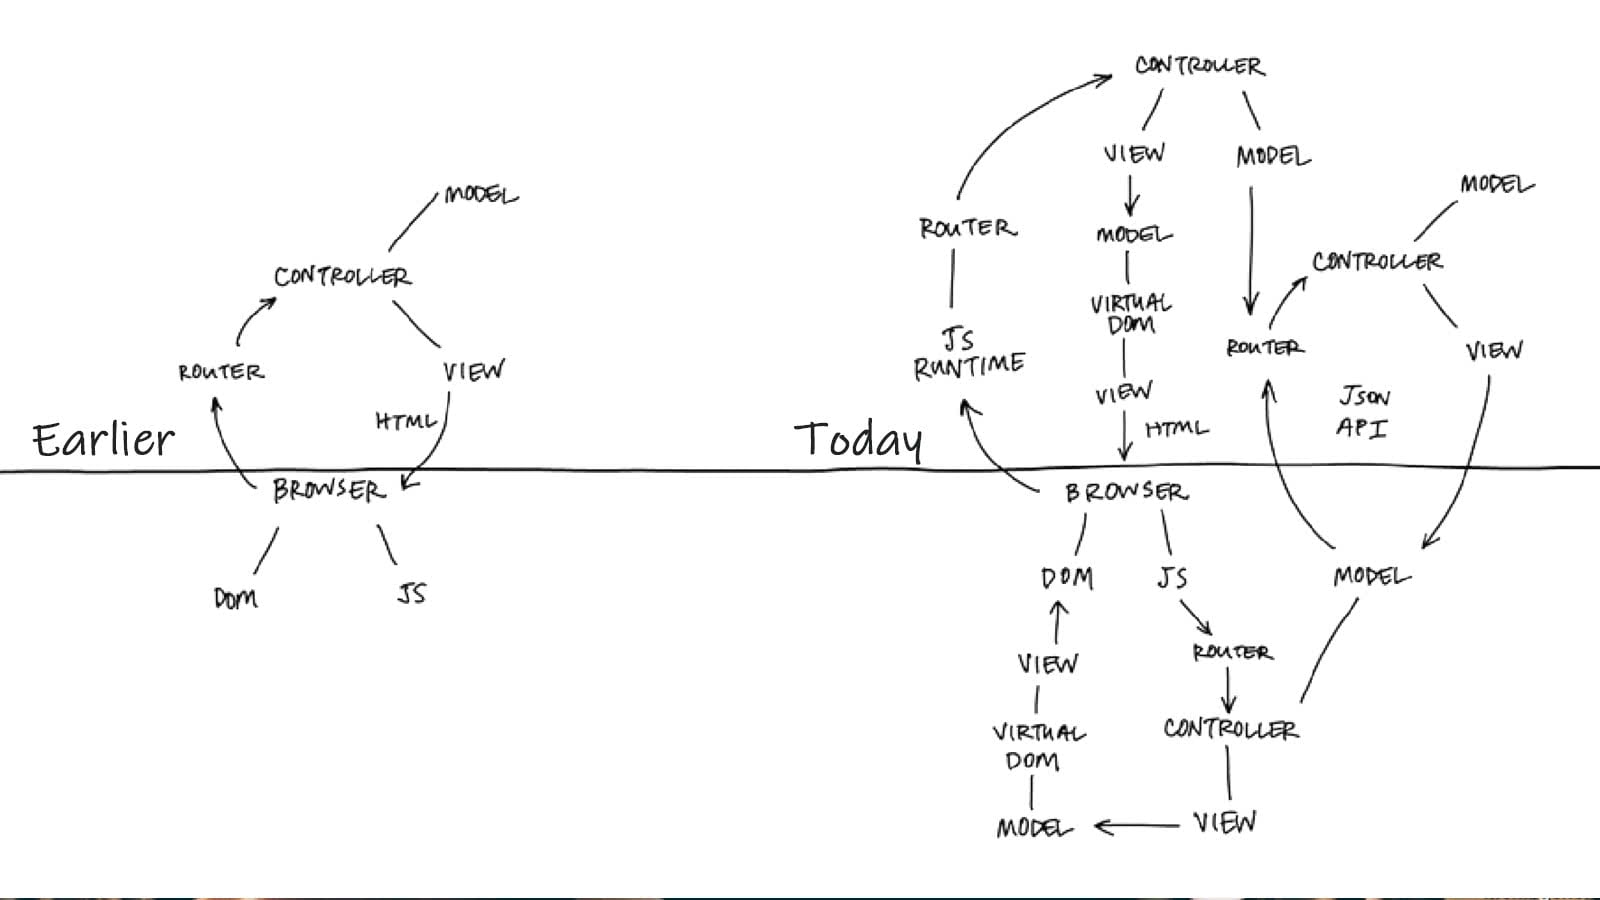 MODEL
CONTROLLER
ROUTER
VIEW
HTML
Earlier
BROWSER
DOM
JS
CONTROLLER
VIEW
MODEL
ROUTER
MODEL
VIRTUAL
DOM
VIEW
HTML
JS
RUNTIME
MODEL
CONTROLLER
ROUTER
VIEW
JSON
API
Today
BROWSER
DOM
JS
MODEL
VIEW
ROUTER
VIRTUAL
DOM
CONTROLLER
MODEL
VIEW